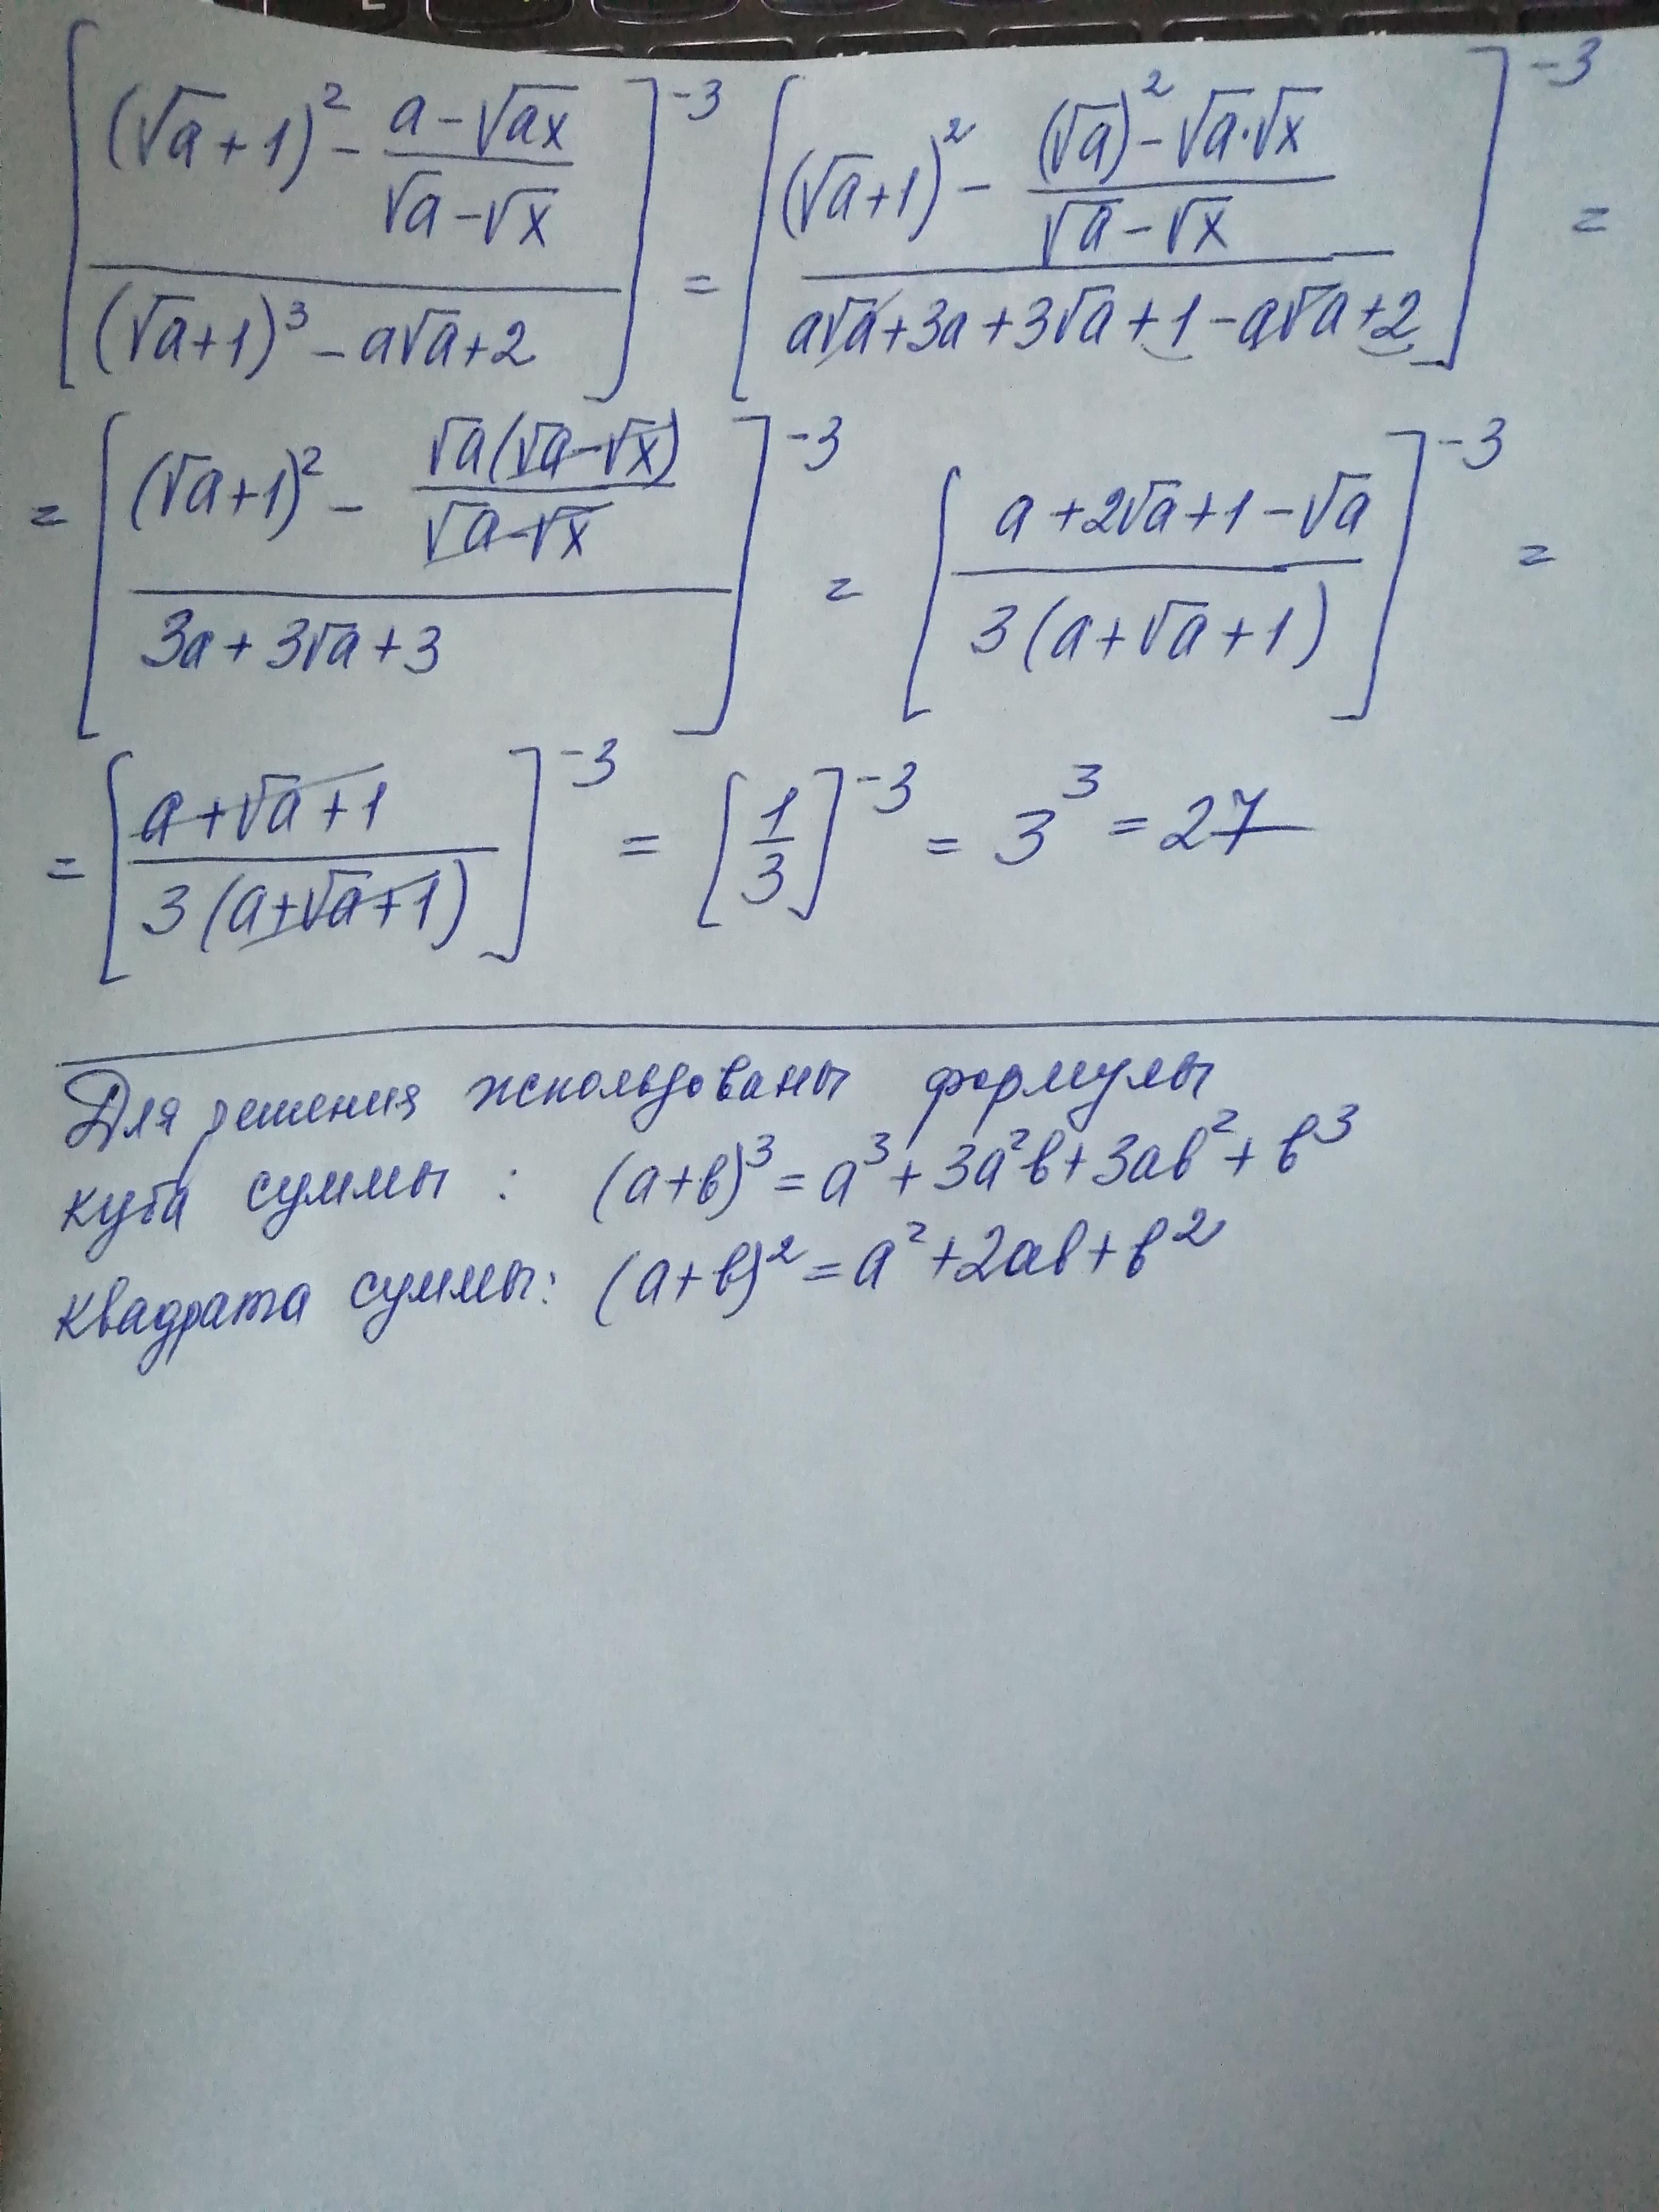 [((√a+1)² - (a-√ax)/(√a-√x)) / ((√a+1)³ - a√a+2)]⁻³ = [((√a+1)² - ((√a)²-√a·√x)/(√a-√x)) / (a√a+3a+3√a+1-a√a+2)]⁻³ =
= [((√a+1)² - (√a(√a-√x))/(√a-√x)) / (3a+3√a+3)]⁻³ = [(a+2√a+1-√a) / (3(a+√a+1))]⁻³ =
= [(a+√a+1) / (3(a+√a+1))]⁻³ = [1/3]⁻³ = 3³ = 27
Для решения использованы формулы
куба суммы : (a+b)³ = a³+3a²b+3ab²+b³
квадрата суммы: (a+b)² = a²+2ab+b²